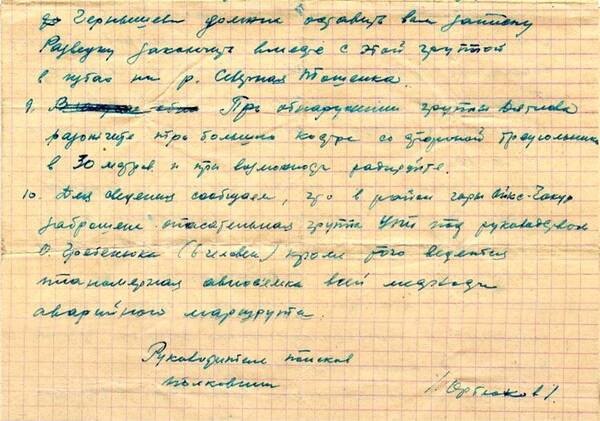 до Чернышева должны оставить вам записку
Разведку закончить вместе с этой группой
в чумах на р. Северная Тошемка.
9. При обнаружении группы Дятлова
разожгите три больших костра со стороной треугольника
в 30 метров и при возможности радируйте.
10. Для сведения сообщаем, что в район горы Ойко-Чакур
заброшена спасательная группа УПИ под руководством
О. Гребенюка (6 человек) кроме того ведется
планомерная авиасъемка всей местности
аварийного маршрута.
Руководитель поисков
полковник
/Ортюков/.